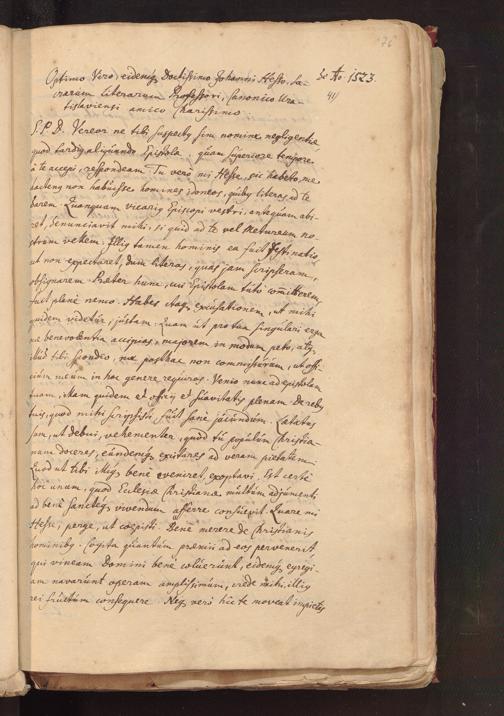 176
Optimo Viro, eidemq Doctissimo Johanni Hesso, Sa- de Ao. 1523.
crarum literarum Professori, Canonico Vra- 41
tislaviensi amico Charissimo
S.P.D. Vereor ne tibi suspectq sim nomine negligentiæ
quod tardiq aliquando Epistolæ, quam superiore tempore
à te accepi, respondeam. Tu verò mi Hesse, sic habeto, me
hactenq non habuisse homines idoneos, quibq literas ad te
darem. Quanquam vicariq Episcopi vestri, antequam abi-
ret, denunciavit mihi, si quid ad te vel Metuream no-
strum vellem. Illiq tamen hominis ea fuit festinatio,
ut non expectaret, dum literas, quas jam scripseram,
obsignarem. Præter hunc, cui Epistolam tutò comitterem,
fuit planè nemo. Habes itaq excusationem, ut mihi
quidem videtur, justam. Quam ut pro tua singulari erga
me benevolentia accipias, majorem in modum peto, atq
illud tibi spondeo, me posthac non commissurum, ut offi-
cium meum in hoc genere requiras. Venio nunc ad epistolam
tuam, illam quidem et officii et suavitatis plenam. De rebq
tuis, quod mihi scripsisti, fuit sanè jucundum. Lætatus
sum, ut debui, vehementer, quod tu populum Christia-
num doceres, eundemq excitares ad veram pietatem.
Quod ut tibi illiq benè eveniret, exoptavi. Est certè
hoc unum, quod Ecclesiæ Christianæ multum adjumenti
ad benè sanctéq vivendum afferre consuevit. Quare mi
Hesse, perge, ut coepisti. Benè merere de Christianis
hominibq. Cogita quantum præmii ad eos pervenerit,
qui vineam Domini bene coluerunt, eidemq egregi-
am navarunt operam amplissimum, crede mihi, illiq
rei fructum consequere. Neq verò hic te moveat impietas